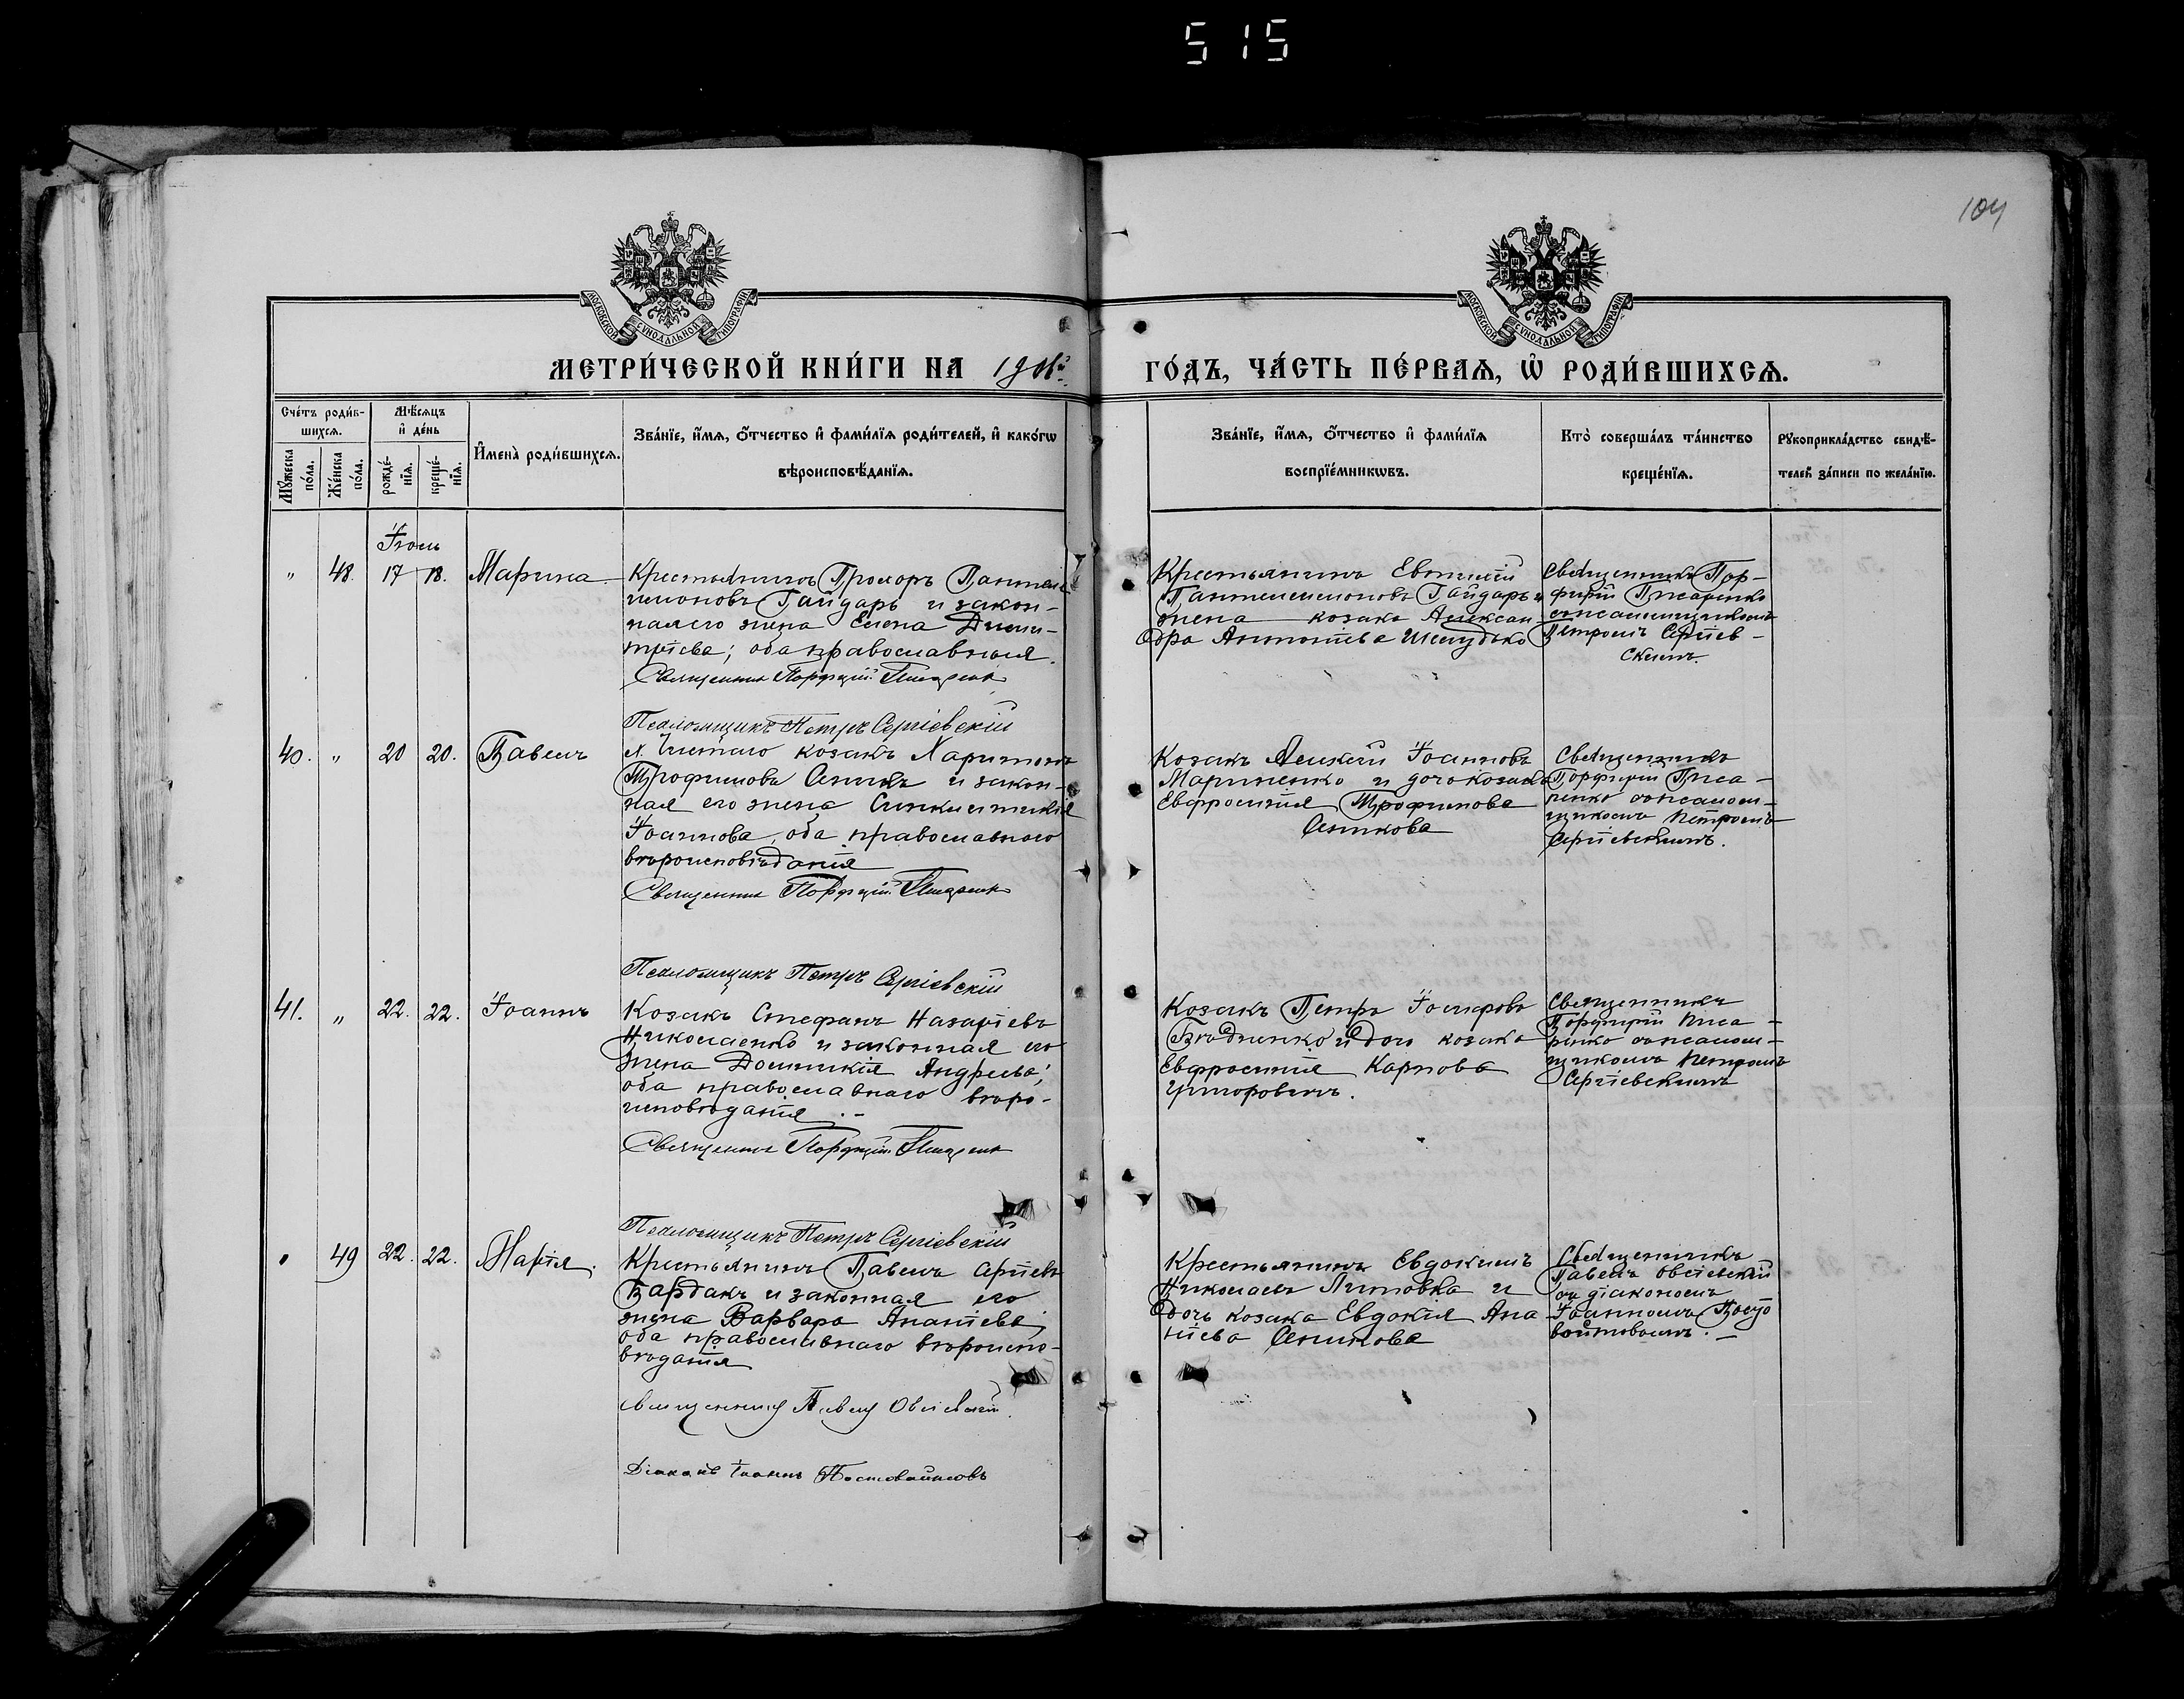 515
104
МОСКОВСКОЙ СѴНОДАЛЬНОЙ ТИПОГРАФІИ
МОСКОВСКОЙ СѴНОДАЛЬНОЙ ТИПОГРАФІИ
МЕТРИ́ЧЕСКОЙ КНИ́ГИ НА
ГО́ДЪ, ЧА́СТЬ ПЕ́РВАѦ, Ѡ҆ РОДИ́ВШИХСѦ.
Сче́тъ роди́в-
шихсѧ.
Мꙋ́жеска по́ла.
Же́нска по́ла.
Мѣ́сѧцъ
и҆ де́нь
рожде́-
нїѧ.
креще́-
нїѧ.
И҆мена̀ роди́вшихсѧ.
Зва́нїе, и҆́мѧ, ѻ҆́тчество и҆ фами́лїѧ роди́телей, и҆ како́гѡ
вѣроисповѣ́данїѧ.
Зва́нїе, и҆́мѧ, ѻ҆́тчество и҆ фами́лїѧ
воспрїе́мникѡвъ.
Кто̀ соверша́лъ та́инство
креще́нїѧ.
Рꙋкоприкла́дство свидѣ́-
телей за́писи по жела́нїю.
Іюль
„ 48. 17 18. Марина
Крестьянинъ Прохоръ Пантеле
имоновъ Гайдарь и закон-
ная его жена Елена Дими-
тріева; оба православныя.
Священникъ Порфирій Писаренко
Псаломщикъ Петръ Сергіевскій
Крестьянинъ Евтихій
Пантелеимоновъ Гайдарь и
жена козака Алексан-
дра Антоніева
Священникъ Пор-
фирій Писаренко
съ псаломщикомъ
Петромъ Сергіев-
скимъ.
40. „ 20 20. Павелъ
козакъ Харитонъ
Трофимовъ Аникъ и закон-
ная его жена Синклитикія
Іоаннова, оба православного
вѣроисповѣданія
Священникъ Порфирій Писаренко
Псаломщикъ Петръ Сергіевскій
Козакъ Алексій Іоанновъ
Мариненко и дочь козака
Евфросинія Трофимова
Аникова
Священникъ
Порфирій Писа-
ренко съ псалом-
щикомъ Петромъ
Сергіевскимъ.
41. „ 22. 22. Іоаннъ
Козакъ Стефанъ Назаріевъ
Николаенко и законная его
жена Домникія Андреева;
оба православнаго вѣро-
исповѣданія.-
Священникъ Порфирій Писаренко
Псаломщикъ Петръ Сергіевскій
Козакъ Петръ Іосифовъ
и дочь козака
Евфросинія Карпова
Григоровичъ.
Священникъ
Порфирій Писа-
ренко съ псалом-
щикомъ Петромъ
Сергіевскимъ
49 22. 22. Марія.
Крестьянинъ Павелъ Сергіевъ
Бардакъ и законная его
жена Варвара Ананіева;
оба православнаго вѣроиспо-
вѣданія
священникъ Павелъ Овсіевскій
Діаконъ Іоаннъ Постовойтовъ
Крестьянинъ Евдокимъ
Николаевъ Литовка и
дочь козака Евдокія Ана
ніева Аникова
Священникъ
Павелъ Овсіевскій
съ діакономъ
Іоанномъ Посто
войтовымъ.-